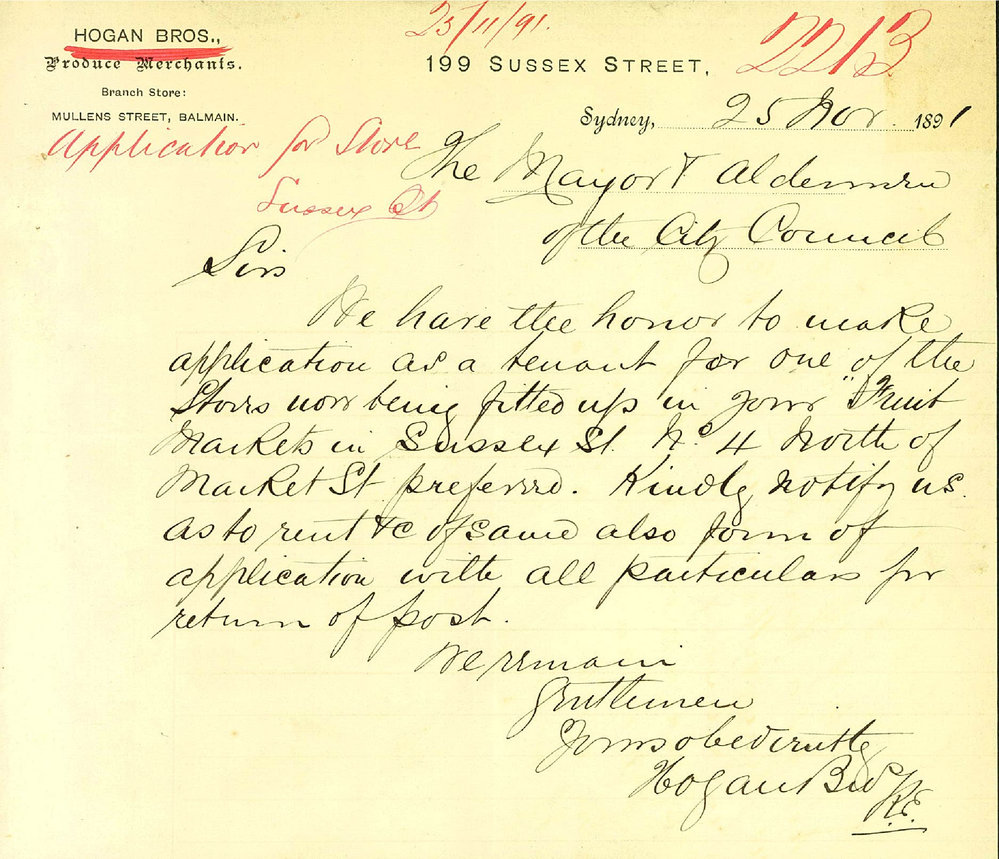 HOGAN BROS.,
Produce Merchants.
Branch Store:
MULLENS STREET, BALMAIN.
25/11/91.
199 SUSSEX STREET,
2213
Sydney, 25 Nov. 1891
Application for Store
Sussex St
The Mayor & Aldermen
of the City Council
Sirs
We have the honor to make
application as a tenant for one of the
Stores now being fitted up in your "Fruit
Markets in Sussex St. No 4 North of
Market St preferred. Kindly notify us
as to rent &c of same also form of
application with all particulars per
return of post.
We remain
Gentlemen
Yours obediently
Hogan Bros